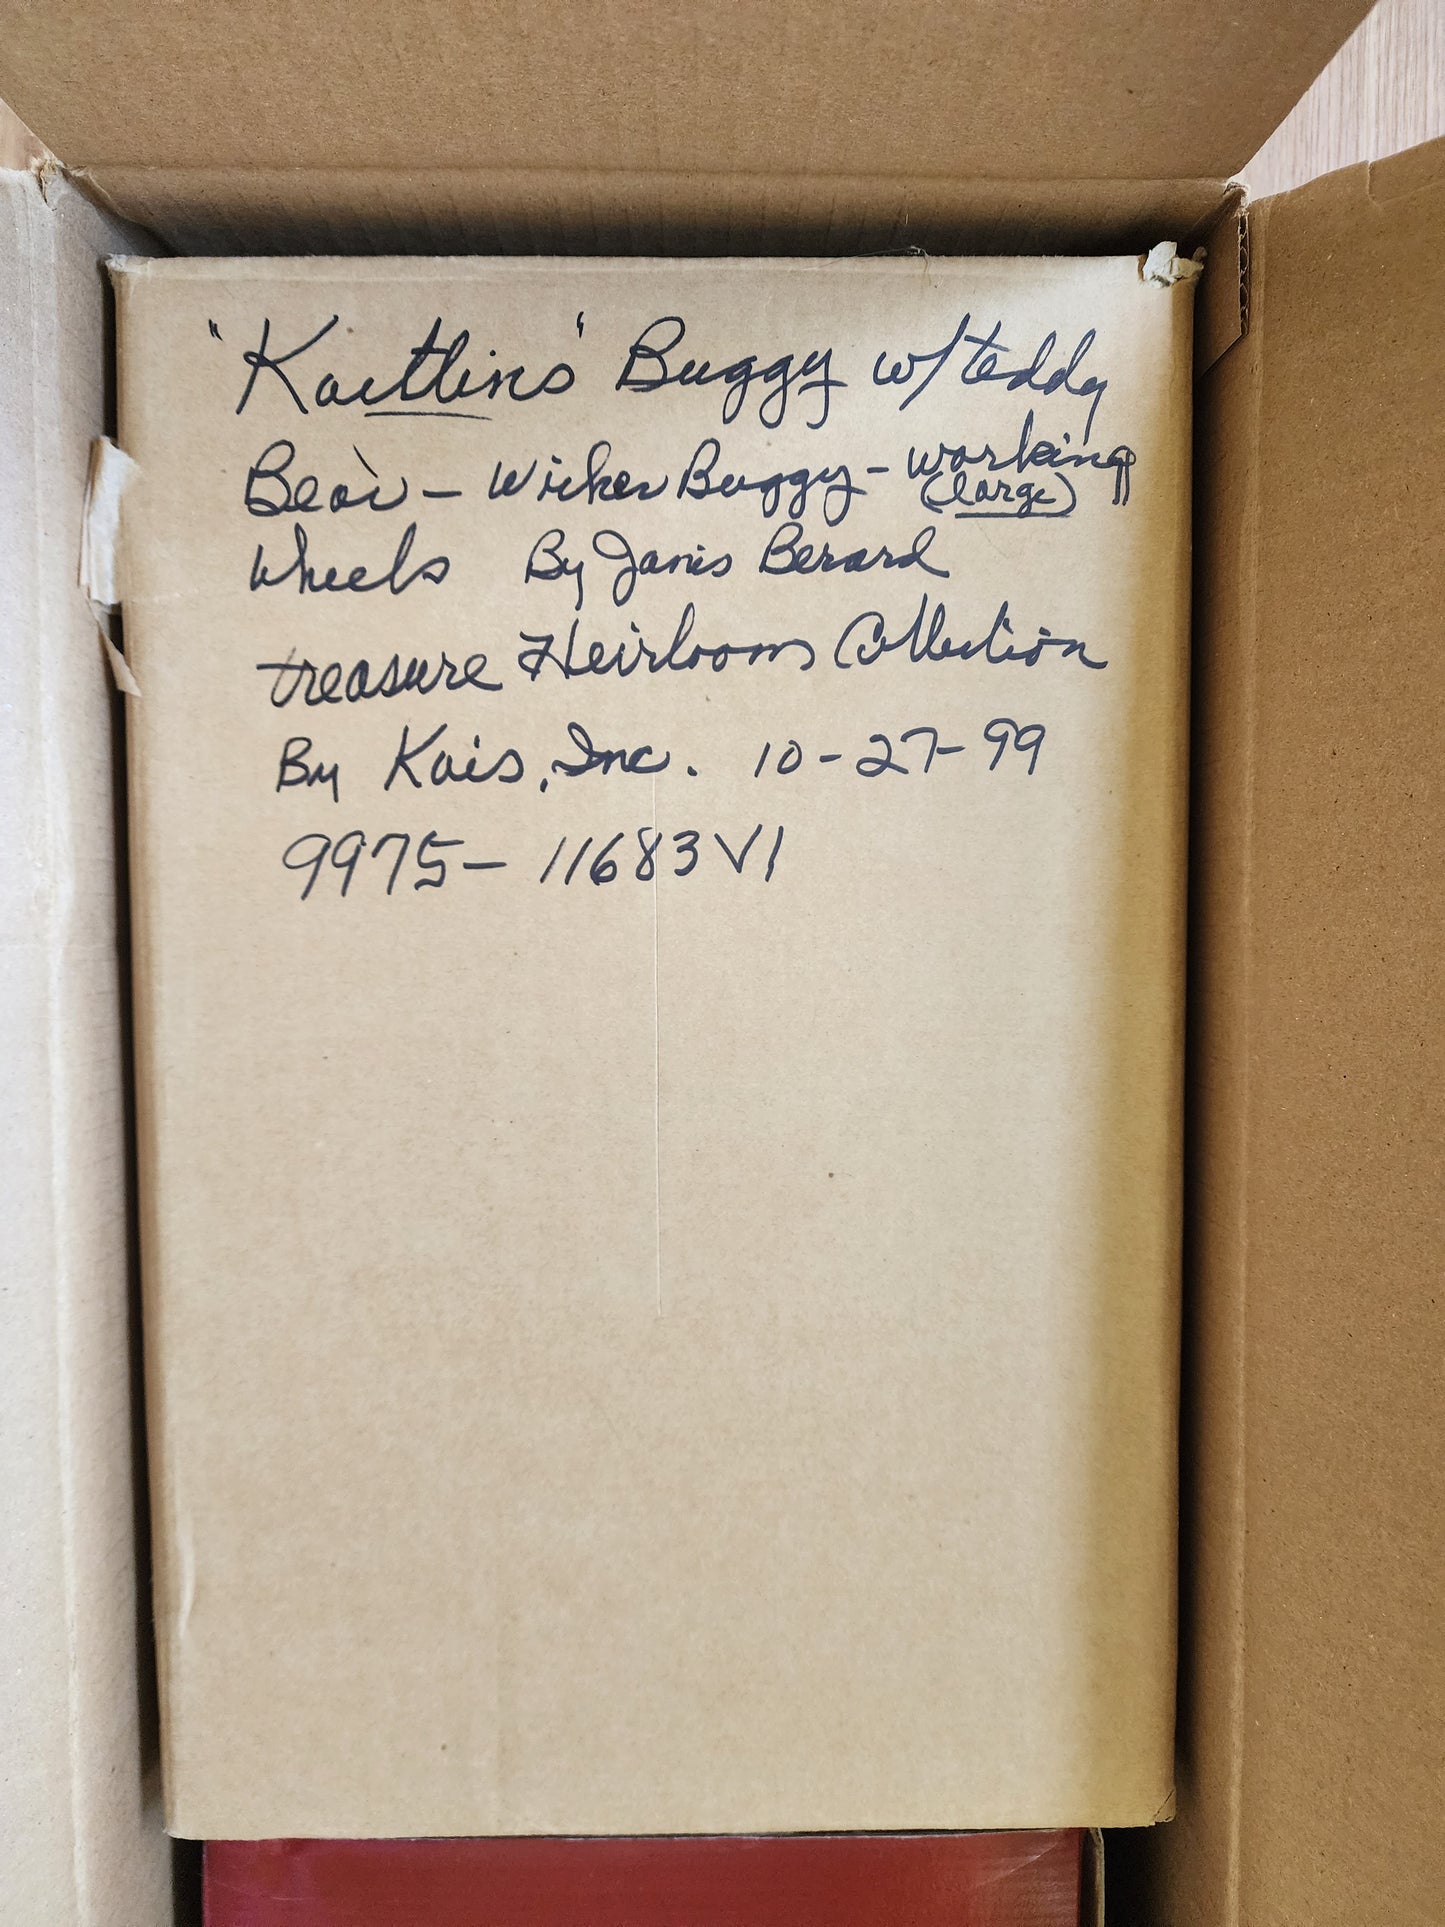 "Kaitlins" Buggy w/teddy
Bear - Wicker Buggy - working
(large)
wheels By Janis Berard
treasure Heirloom Collection
By Kais, Inc. 10-27-99
9975- 11683V1